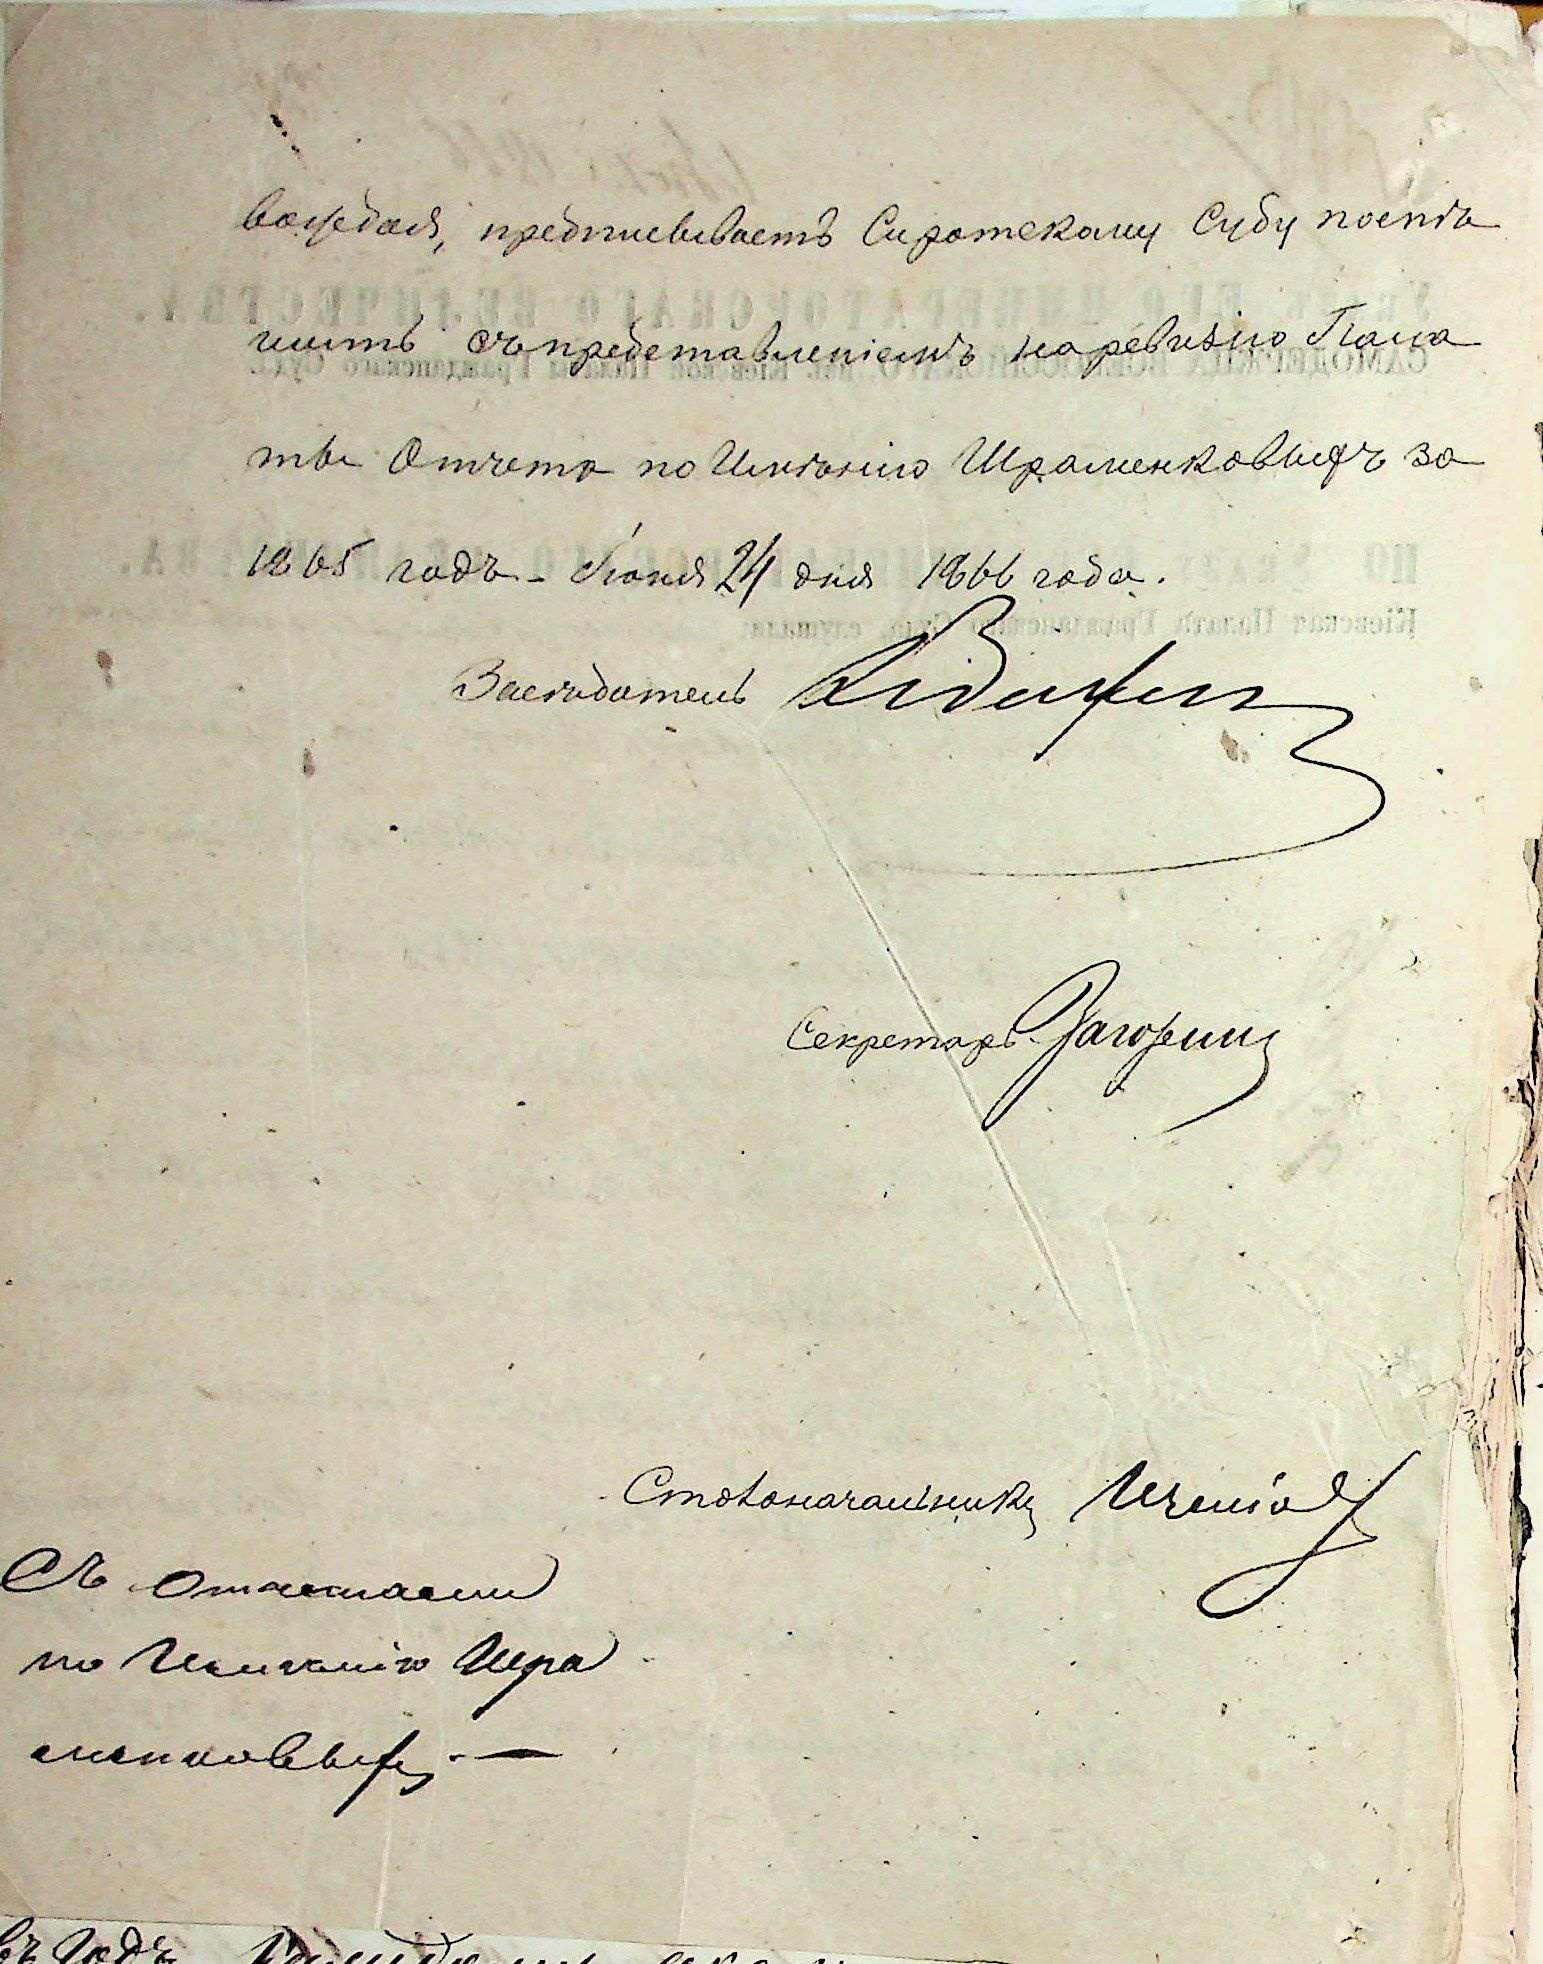 вождая, предписываетъ Сиротскому Суду поспѣ
шить съ представленіемъ на ревизію Пала
ты Отчета по Имѣнію Шраменковыхъ за
1865 годъ - Іюня 24 дня 1866 года.
Засѣдатель
Секретарь
Столоначальникъ
Съ
по Имѣнію Шра
менковыхъ. —
въ годъ